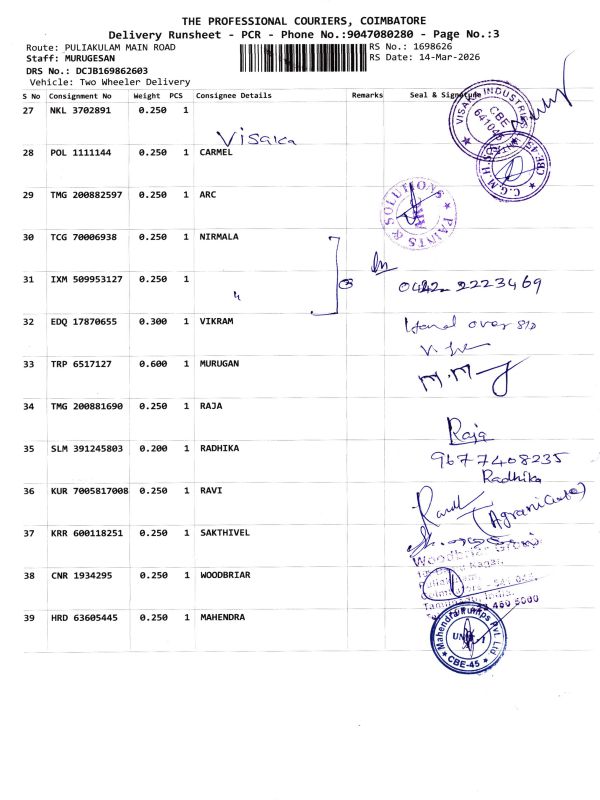 THE PROFESSIONAL COURIERS, COIMBATORE
Delivery Runsheet - PCR - Phone No.:9047080280 - Page No.:3
Route: PULIAKULAM MAIN ROAD
RS No.: 1698626
Staff: MURUGESAN
RS Date: 14-Mar-2026
DRS No.: DCJB169862603
Vehicle: Two Wheeler Delivery
S No Consignment No Weight PCS Consignee Details Remarks Seal & Signature
27 NKL 3702891 0.250 1
Visaka
VISAKA INDUSTRIES
CBE
641045
28 POL 1111144 0.250 1 CARMEL
CBE-45
29 TMG 200882597 0.250 1 ARC
PAINTS & SOLUTIONS
30 TCG 70006938 0.250 1 NIRMALA
31 IXM 509953127 0.250 1
0422-2223469
32 EDQ 17870655 0.300 1 VIKRAM
Hand over
33 TRP 6517127 0.600 1 MURUGAN
M.M
34 TMG 200881690 0.250 1 RAJA
Raja
9677408235
35 SLM 391245803 0.200 1 RADHIKA
Radhika
36 KUR 7005817008 0.250 1 RAVI
37 KRR 600118251 0.250 1 SAKTHIVEL
Woodbriar Group
38 CNR 1934295 0.250 1 WOODBRIAR
39 HRD 63605445 0.250 1 MAHENDRA
Mahendra Pumps Pvt. Ltd
CBE-45